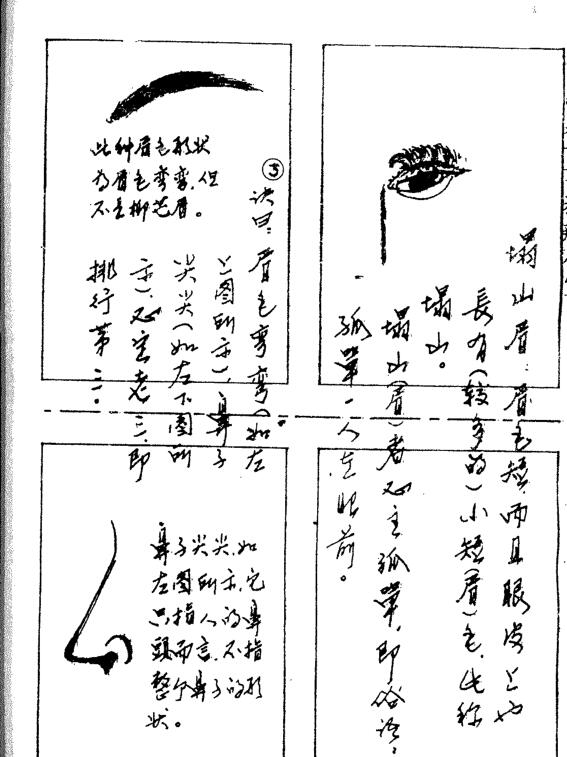 塌山眉：眉毛短，而且眼皮上也
長有（较多的）小短（眉）毛，此称
塌山。
塌山（眉）者必主孤單，即俗语：
孤單一人在眼前。
③
诀曰：眉毛弯弯（如左
上图所示），鼻子
尖尖（如左下图所
示），必定老三，即
排行第三。
此种眉毛形状
为眉毛弯弯，但
不是柳眉。
鼻子尖尖，如
左图所示，它
只指人的鼻
頭而言，不指
整个鼻子的形
状。